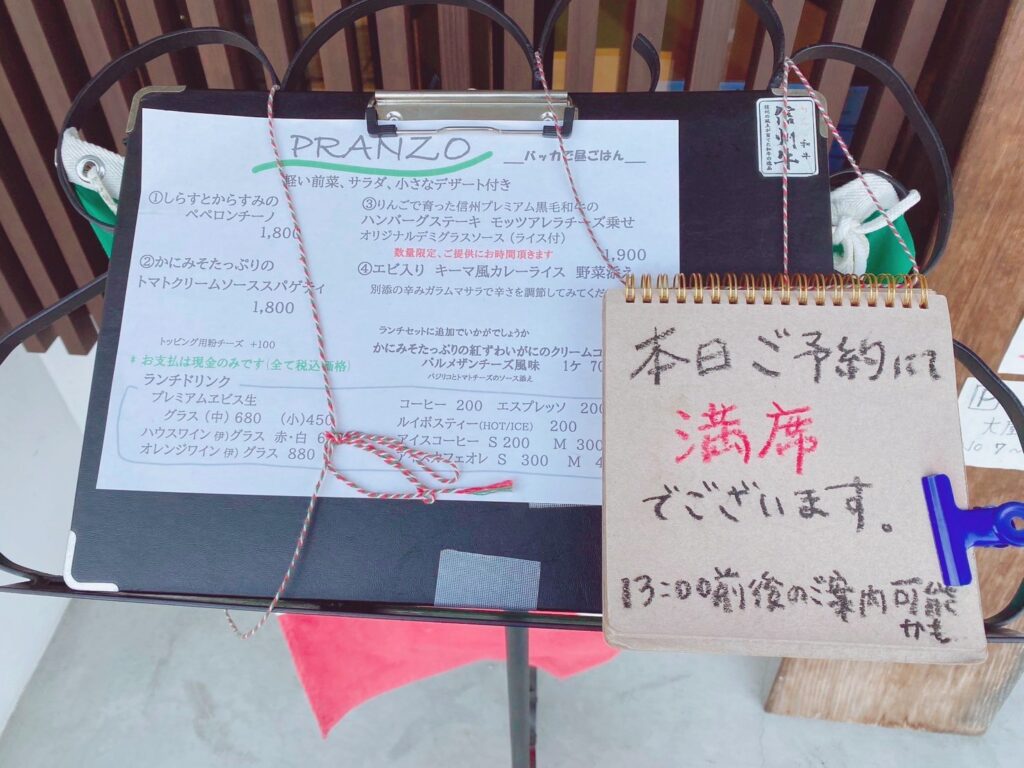 PRANZO
__バッカで昼ごはん__
軽い前菜、サラダ、小さなデザート付き
①しらすとからすみの
ペペロンチーノ
1,800
②かにみそたっぷりの
トマトクリームソーススパゲティ
1,800
トッピング用粉チーズ +100
③りんごで育った信州プレミアム黒毛和牛の
ハンバーグステーキ モッツアレラチーズ乗せ
オリジナルデミグラスソース（ライス付）
数量限定、ご提供にお時間頂きます
1,900
④エビ入り キーマ風カレーライス 野菜添え
別添の辛みガラムマサラで辛さを調節してみてくだ
ランチセットに追加でいかがでしょうか
かにみそたっぷりの紅ずわいがにのクリームコ
パルメザンチーズ風味 1ケ 70
バジリコとトマトチーズのソース添え
* お支払は現金のみです（全て税込価格）
ランチドリンク
プレミアムヱビス生
グラス（中）680 （小）450
ハウスワイン（伊）グラス 赤・白 6
オレンジワイン（伊）グラス 880
コーヒー 200 エスプレッソ 200
ルイボスティー(HOT/ICE) 200
アイスコーヒー S 200 M 300
アイスカフェオレ S 300 M 4
和牛
信州牛
本日ご予約にて
満席
でございます。
13:00前後のご案内可能
かも